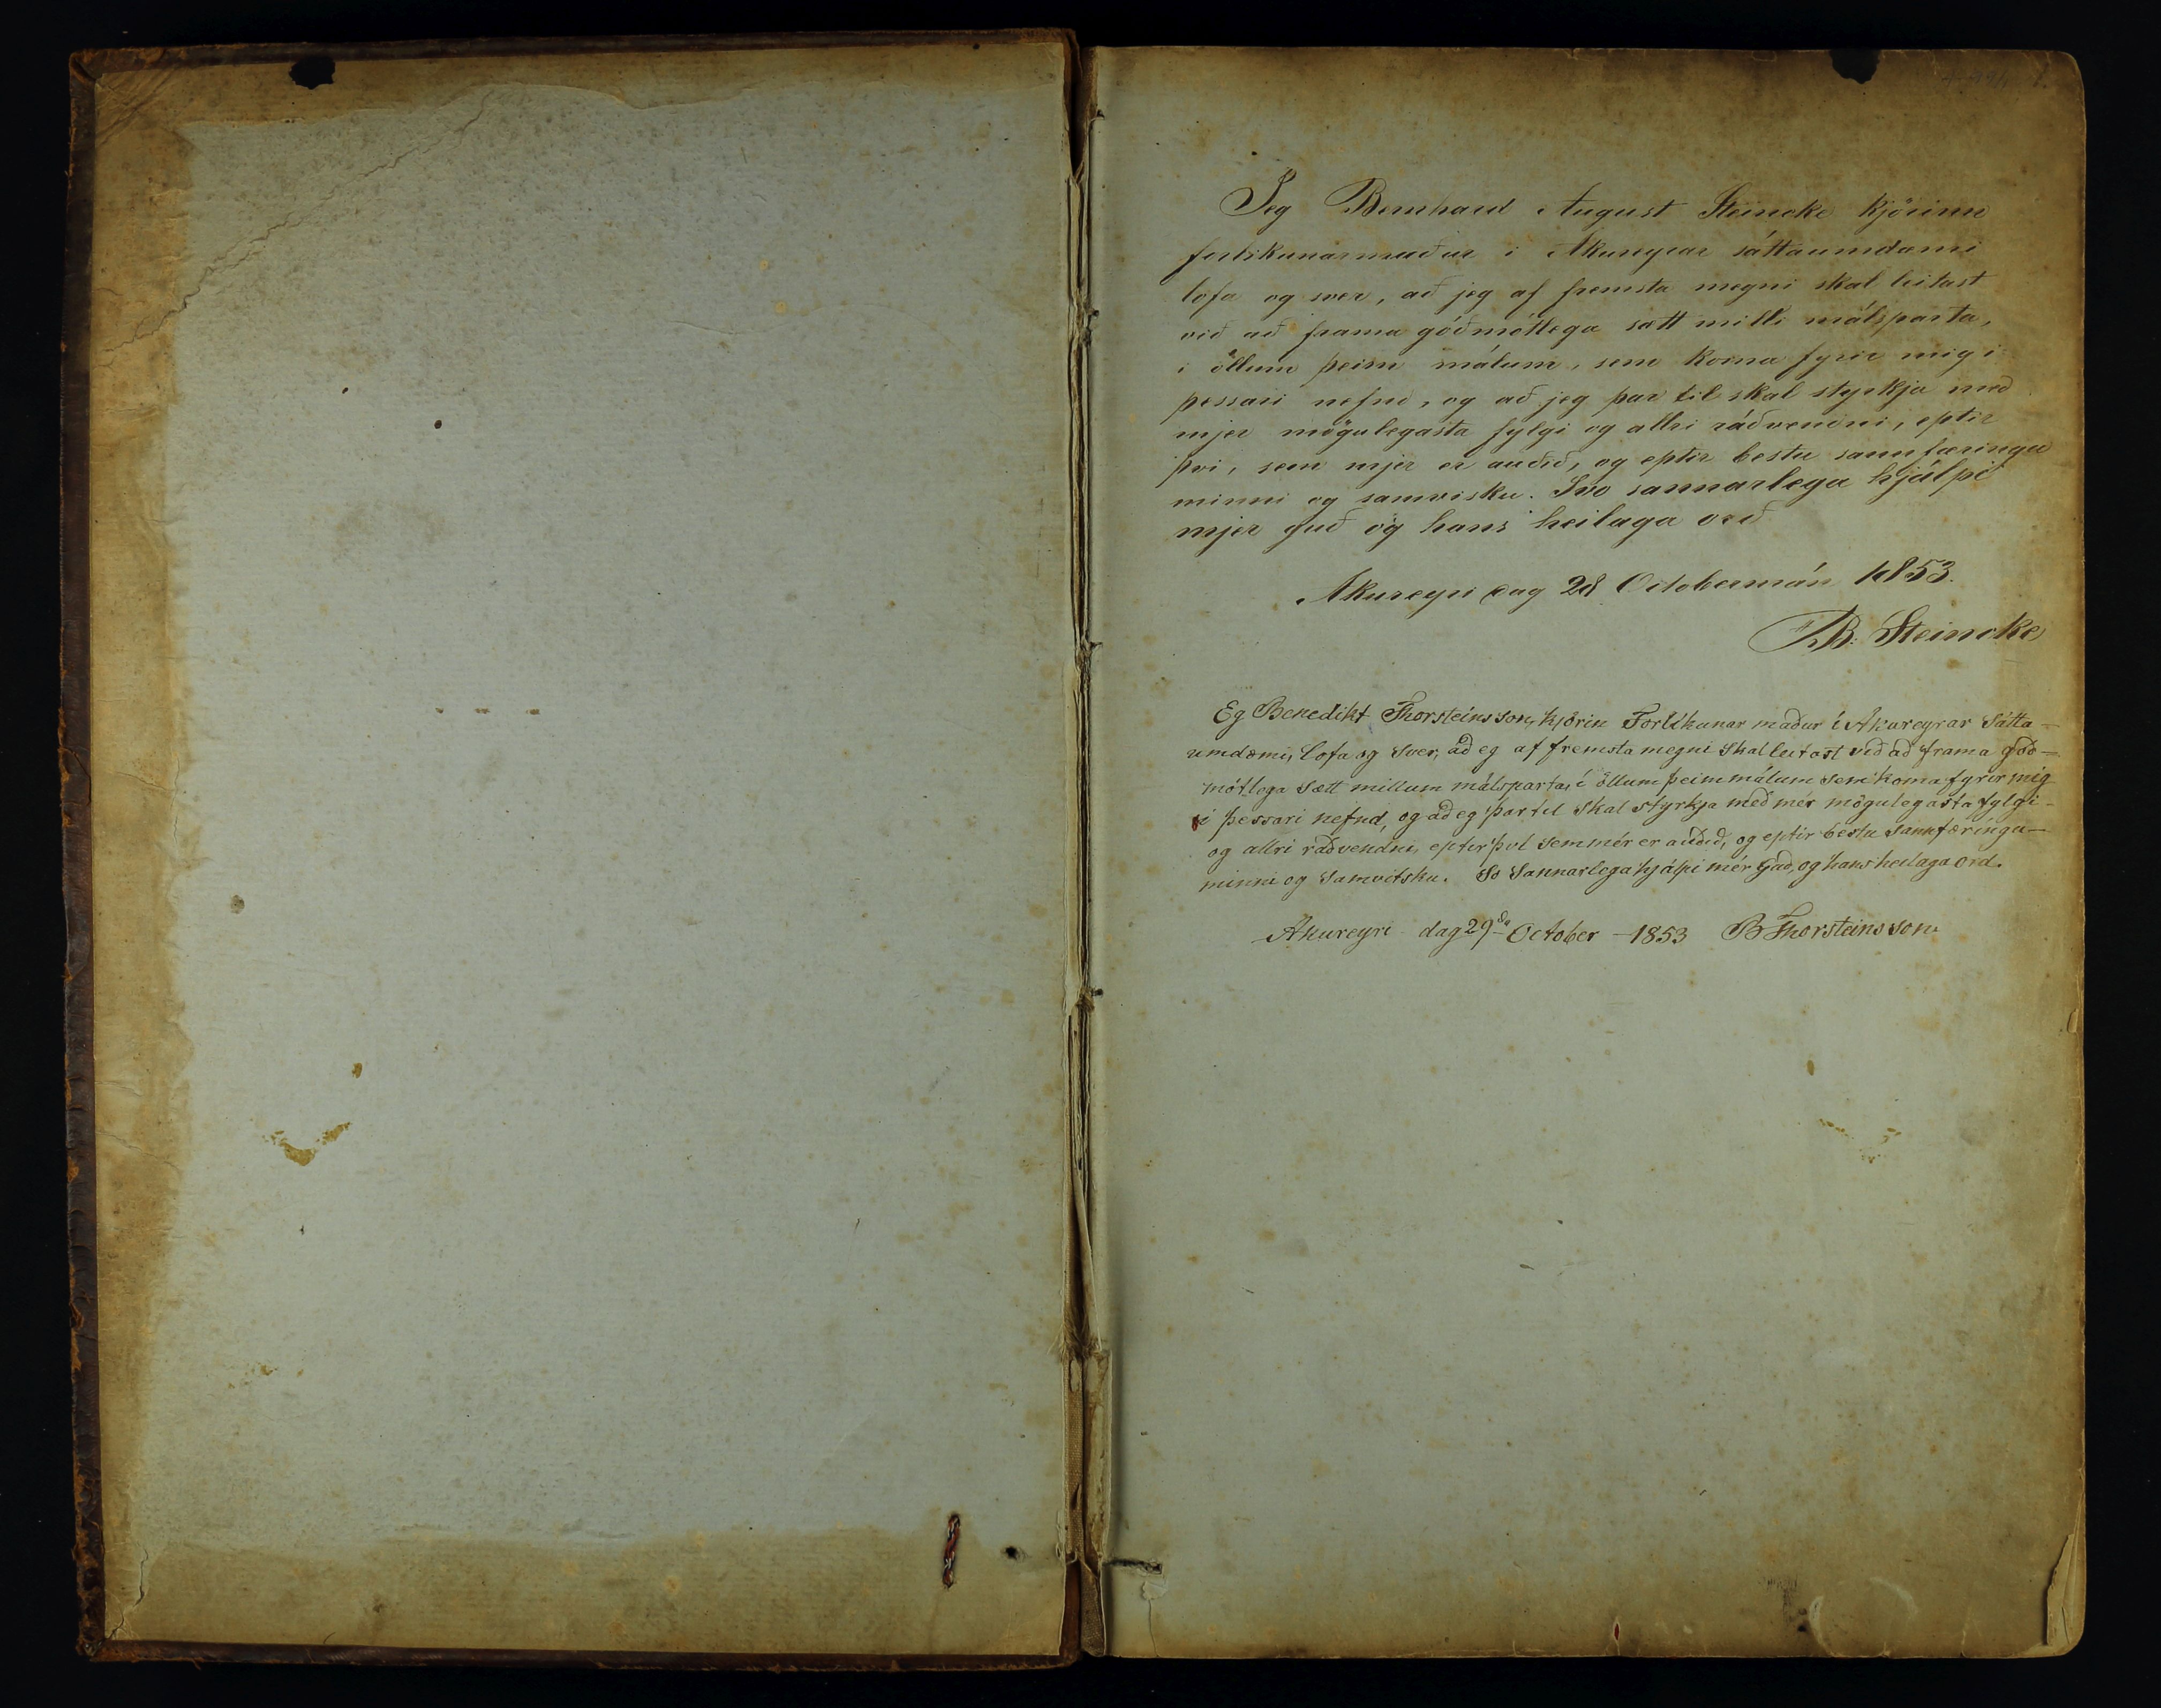 Jeg Bernhard August Steincke kjörinn
forlikunarmaður i Akureyrar sáttaumdæmi
lofa og sver, að jeg af fremsta megni skal leitast
við að frama góðmótlega sætt milli málsparta,
i öllum þeim málum, sem koma fyrir mig i
þessari nefnd, og að jeg þar til skal styrkja með
mjer mögulegasta fylgi og allri ráðvendni, eptir
þvi, sem mjer er auðið, og eptir bestu sannfæringu
minni og samvisku. Svo sannarlega hjálpi
mjer guð og hans heilaga orð
Akureyri dag 28 Octobermán 1853.
B. Steincke
Eg Benedikt Thorsteinsson, kjörin Forlíkunar maður í Akureyrar Sátta-
umdæmi, lofa og Sver, að eg af fremsta megni Skal leitast við að frama goð-
mótlega Sætt millum málsparta, í öllum þeim málum Sem koma fyrir mig
í þessari nefnd, og að eg þartil Skal styrkja með mér mögulegasta fylgi-
og allri raðvendni, eptir því Sem mér er auðið, og eptir bestu Sannfæringu-
minni og Samvitsku. So Sannarlega hjálpi mér Guð, og hans heilaga ord.
Akureyri dag 29da October -1853 B Thorsteinsson.